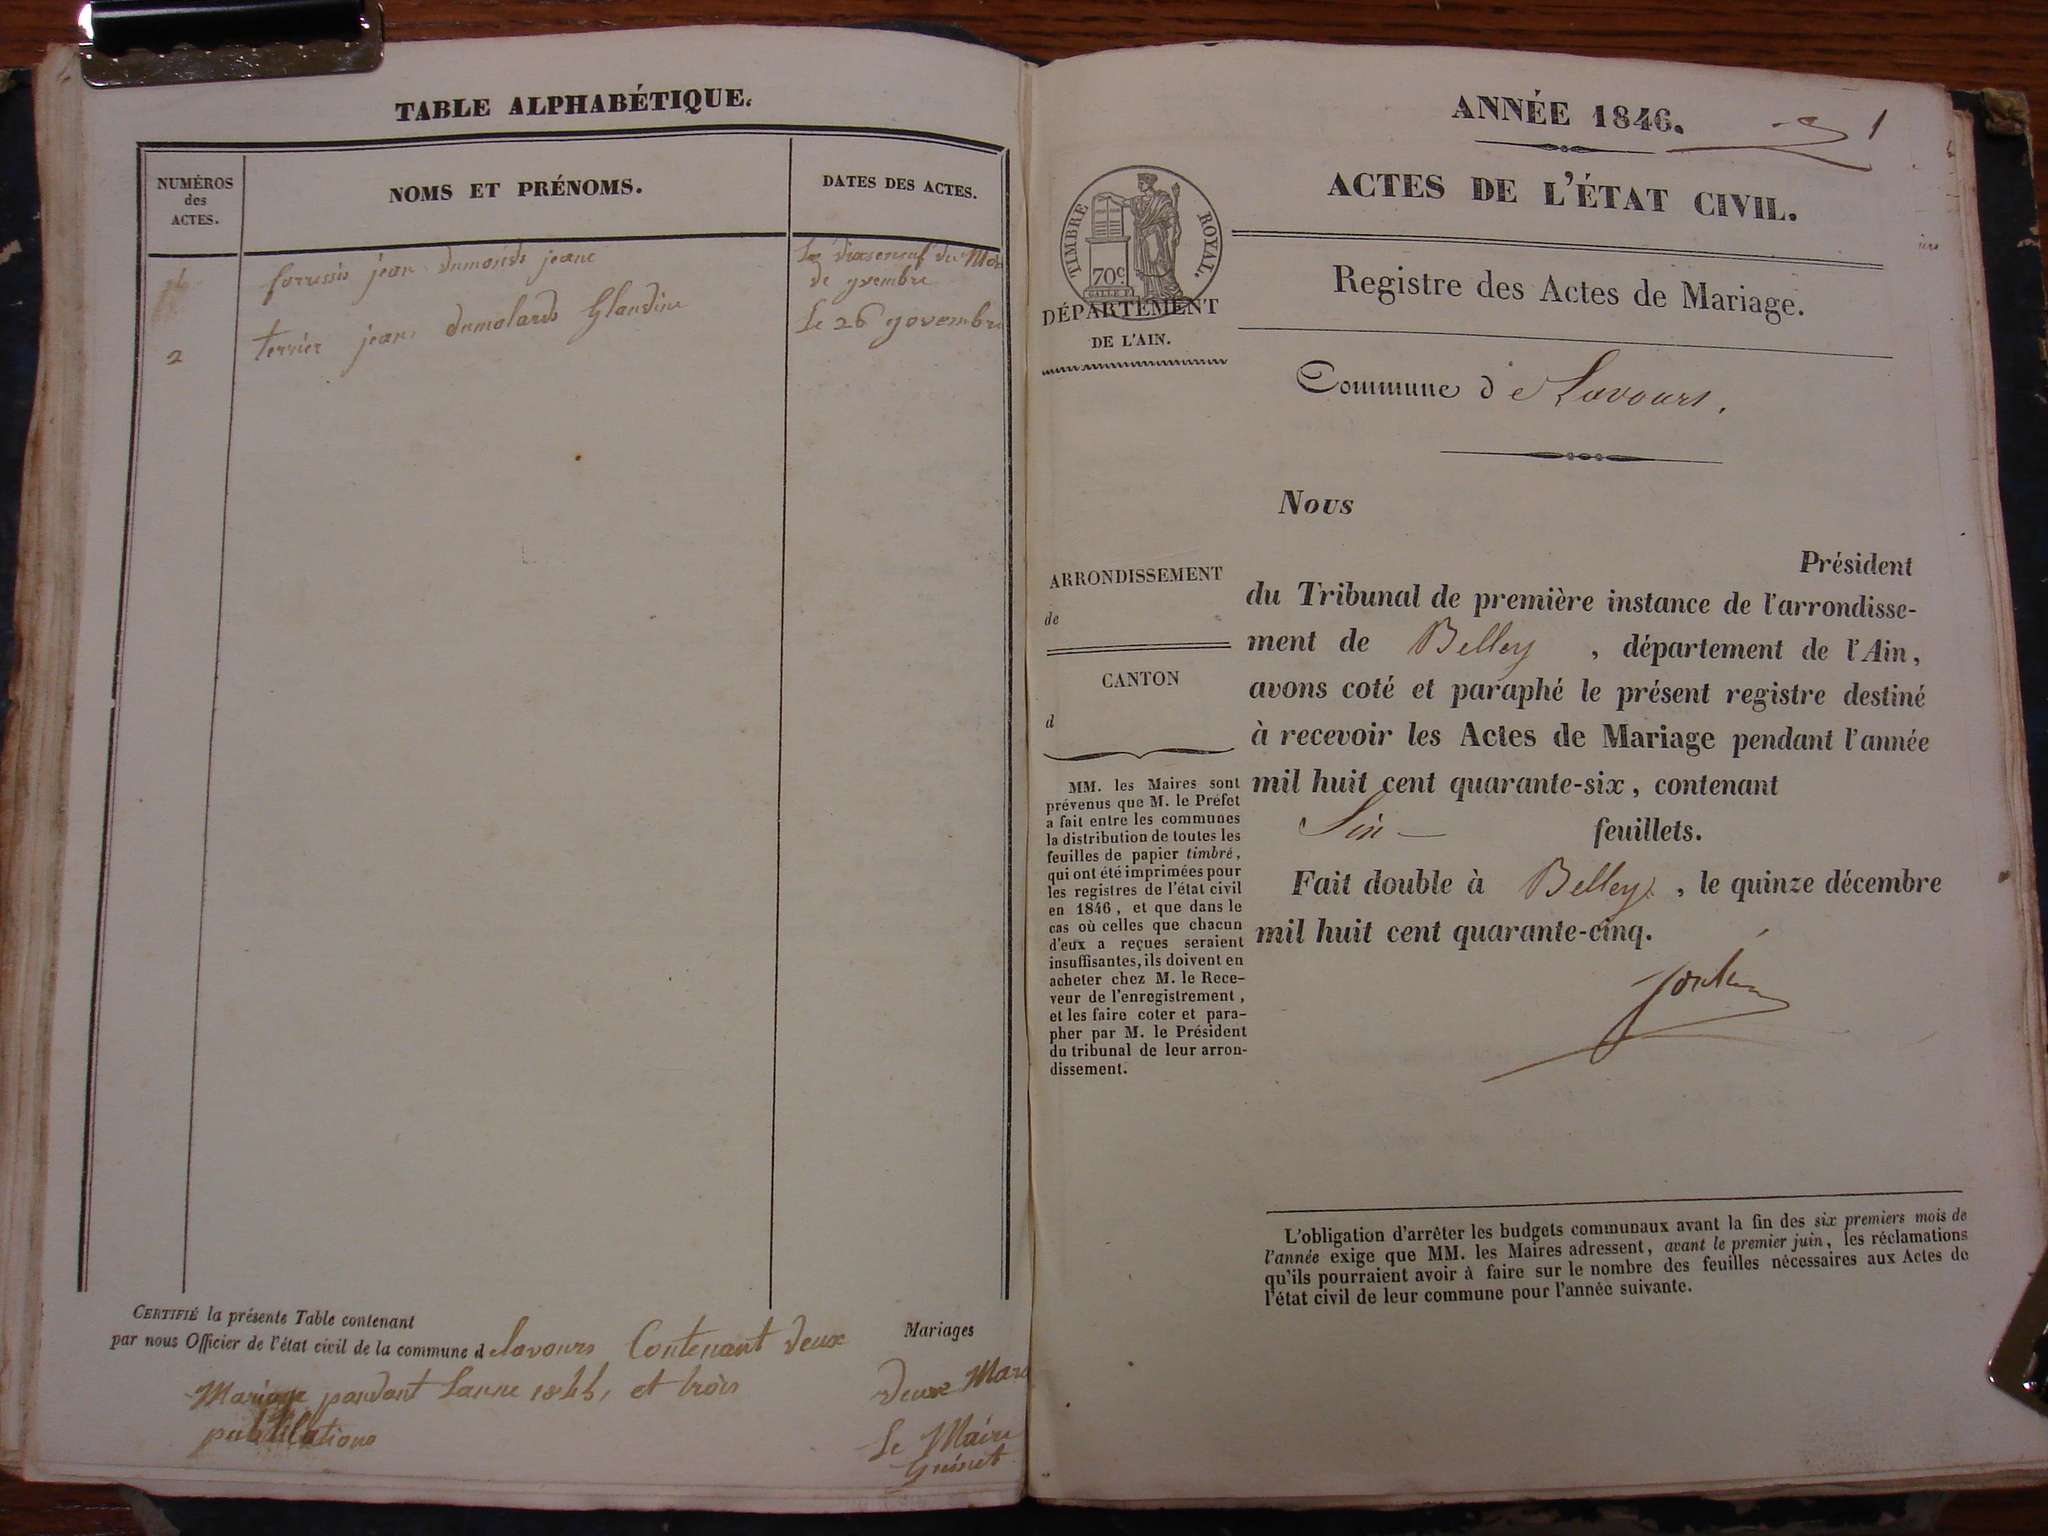 TABLE ALPHABÉTIQUE.
NUMÉROS
des
ACTES.
NOMS ET PRÉNOMS.
DATES DES ACTES.
jean dumonds jeane
Le dixeneuf du Mois
de 9vembre
2
terrier jean dumolards Glandine
Le 26 9ovembre
CERTIFIÉ la présente Table contenant
Mariages
par nous Officier de l'état civil de la commune d elavours Contenant deux
Mariage pandant Lanne 1845, et trois
publications
deuxe Mars
Le Maire
Guinet
ANNÉE 1846.
1
ACTES DE L'ÉTAT CIVIL.
TIMBRE ROYAL.
70c
DÉPARTEMENT
DE L'AIN.
Registre des Actes de Mariage.
Commune de Lavours.
Nous
Président
du Tribunal de première instance de l'arrondisse-
ment de Belley, département de l'Ain,
avons coté et paraphé le présent registre destiné
à recevoir les Actes de Mariage pendant l'année
mil huit cent quarante-six, contenant
Six feuillets.
Fait double à Belley, le quinze décembre
mil huit cent quarante-cinq.
ARRONDISSEMENT
de
CANTON
d
MM. les Maires sont
prévenus que M. le Préfet
a fait entre les communes
la distribution de toutes les
feuilles de papier timbré,
qui ont été imprimées pour
les registres de l'état civil
en 1846, et que dans le
cas où celles que chacun
d'eux a reçues seraient
insuffisantes, ils doivent en
acheter chez M. le Rece-
veur de l'enregistrement,
et les faire coter et para-
pher par M. le Président
du tribunal de leur arron-
dissement.
L'obligation d'arrêter les budgets communaux avant la fin des six premiers mois de
l'année exige que MM. les Maires adressent, avant le premier juin, les réclamations
qu'ils pourraient avoir à faire sur le nombre des feuilles nécessaires aux Actes de
l'état civil de leur commune pour l'année suivante.